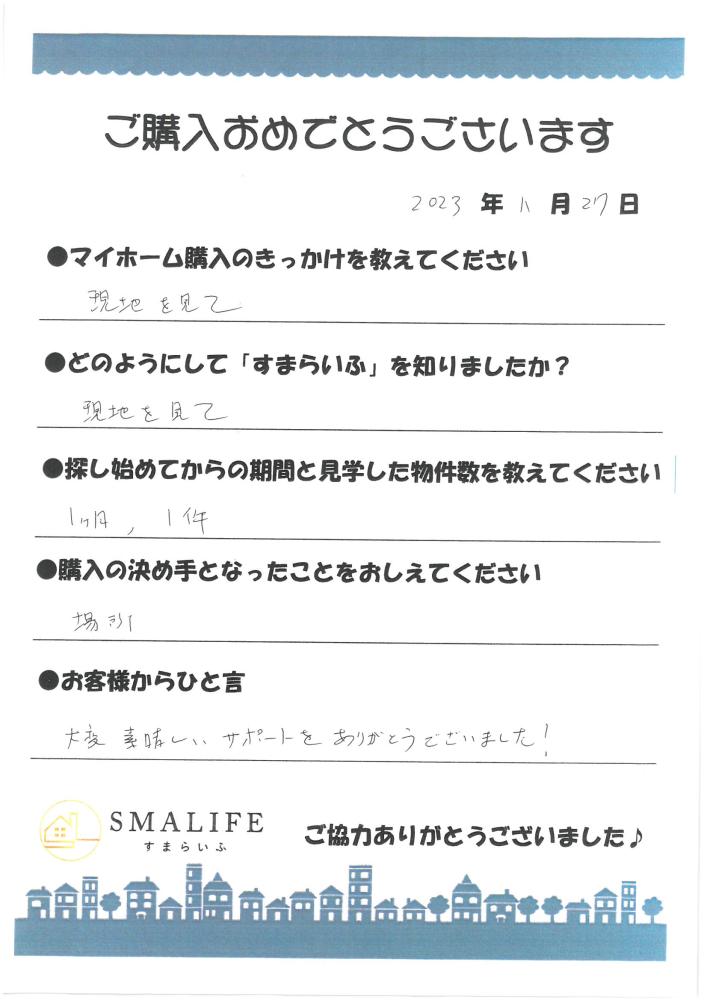 ご購入おめでとうございます
2023 年 11 月 27 日
●マイホーム購入のきっかけを教えてください
現地を見て
●どのようにして「すまらいふ」を知りましたか？
現地を見て
●探し始めてからの期間と見学した物件数を教えてください
1ヶ月, 1件
●購入の決め手となったことをおしえてください
場所
●お客様からひと言
大変素晴しいサポートをありがとうございました!
SMALIFE
すまらいふ
ご協力ありがとうございました♪